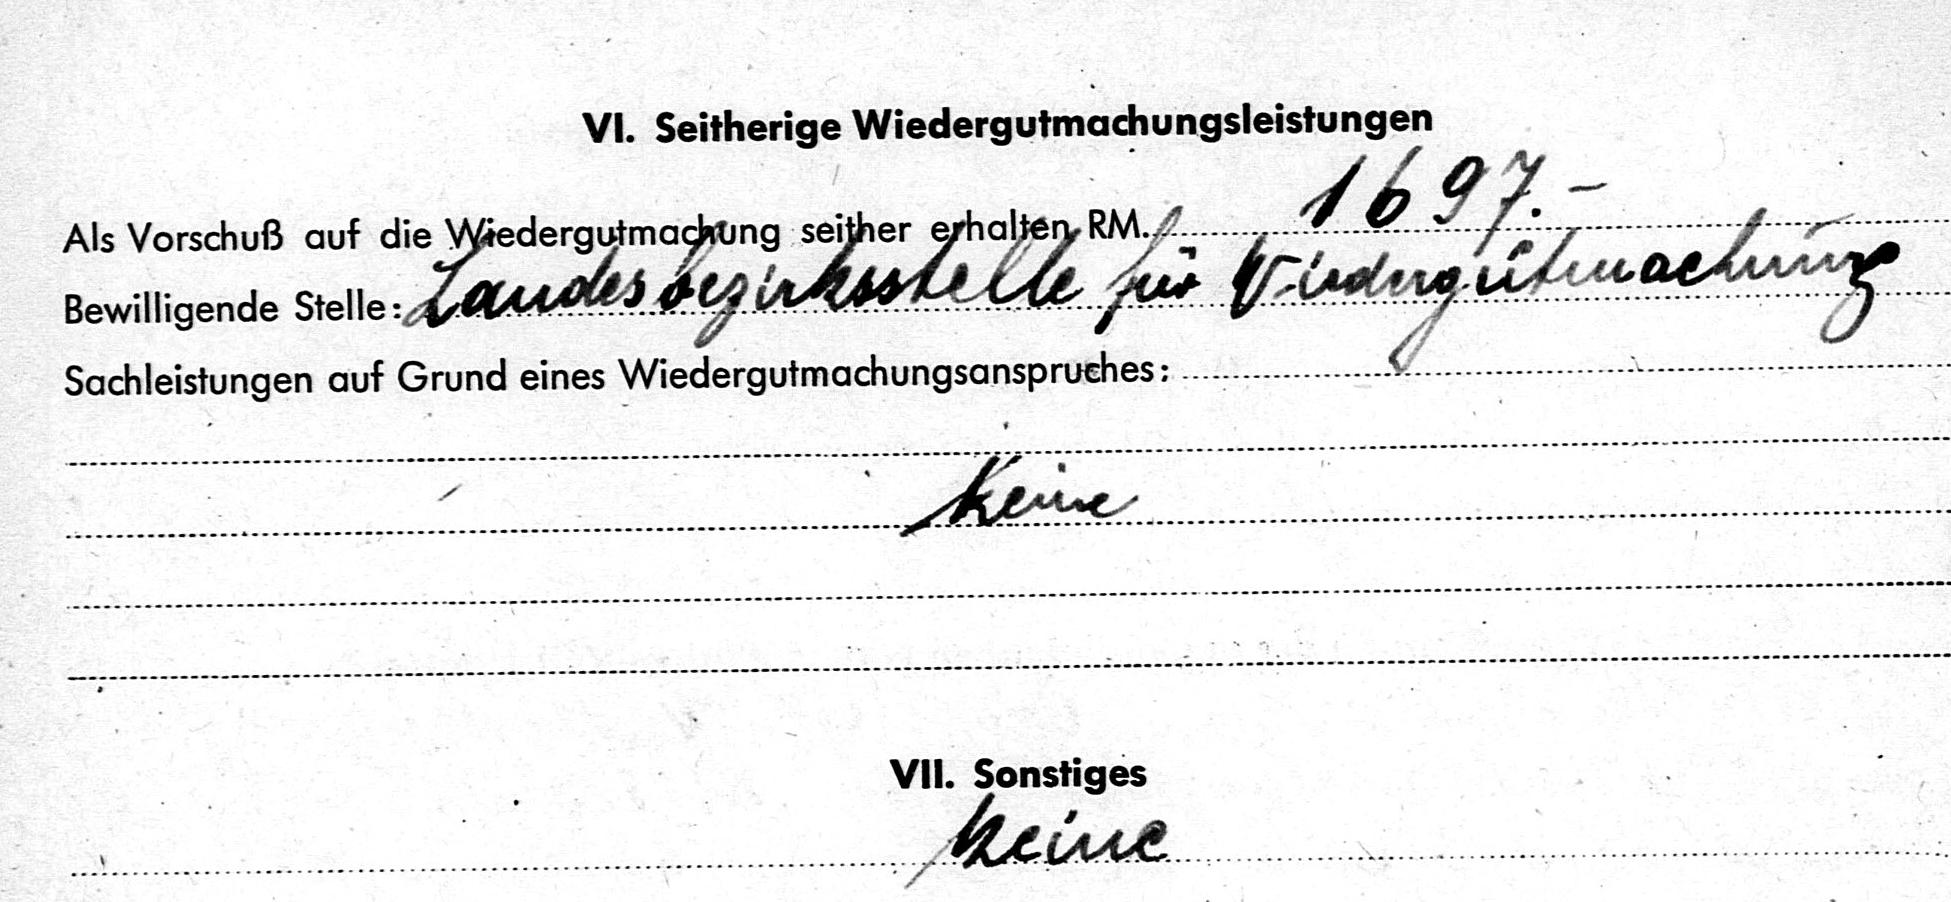 VI. Seitherige Wiedergutmachungsleistungen
Als Vorschuß auf die Wiedergutmachung seither erhalten RM. 1697.-
Bewilligende Stelle: Landesbezirksstelle für Wiedergutmachung
Sachleistungen auf Grund eines Wiedergutmachungsanspruches:
Keine
VII. Sonstiges
keine